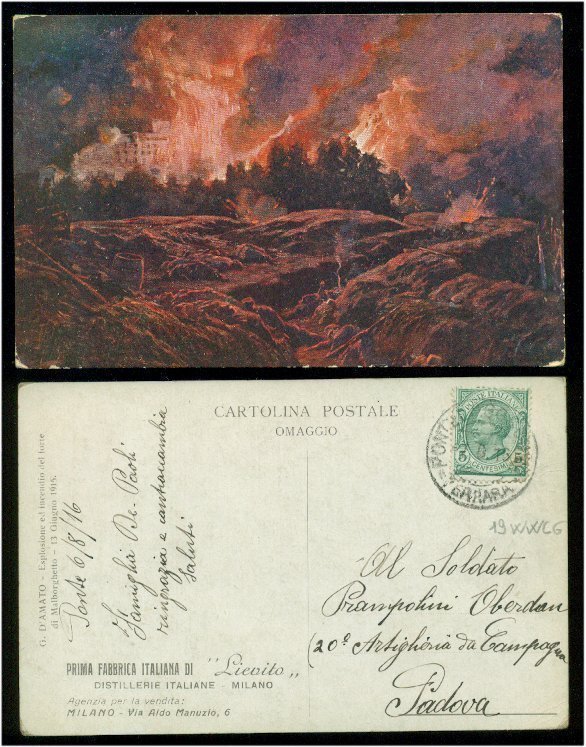 CARTOLINA POSTALE
OMAGGIO
G. D'AMATO - Esplosione ed incendio del forte
di Malborghetto - 13 Giugno 1915.
Ponte 6/8/16
Famiglia De-Paoli
ringrazia e contracambia
saluti
PRIMA FABBRICA ITALIANA DI "Lievito"
DISTILLERIE ITALIANE - MILANO
Agenzia per la vendita:
MILANO - Via Aldo Manuzio, 6
POSTE ITALIANE
CENTESIMI
FERRARA
19WWCG
Al Soldato
Prampolini Oberdan
(20º Artiglieria da Campagna
Padova